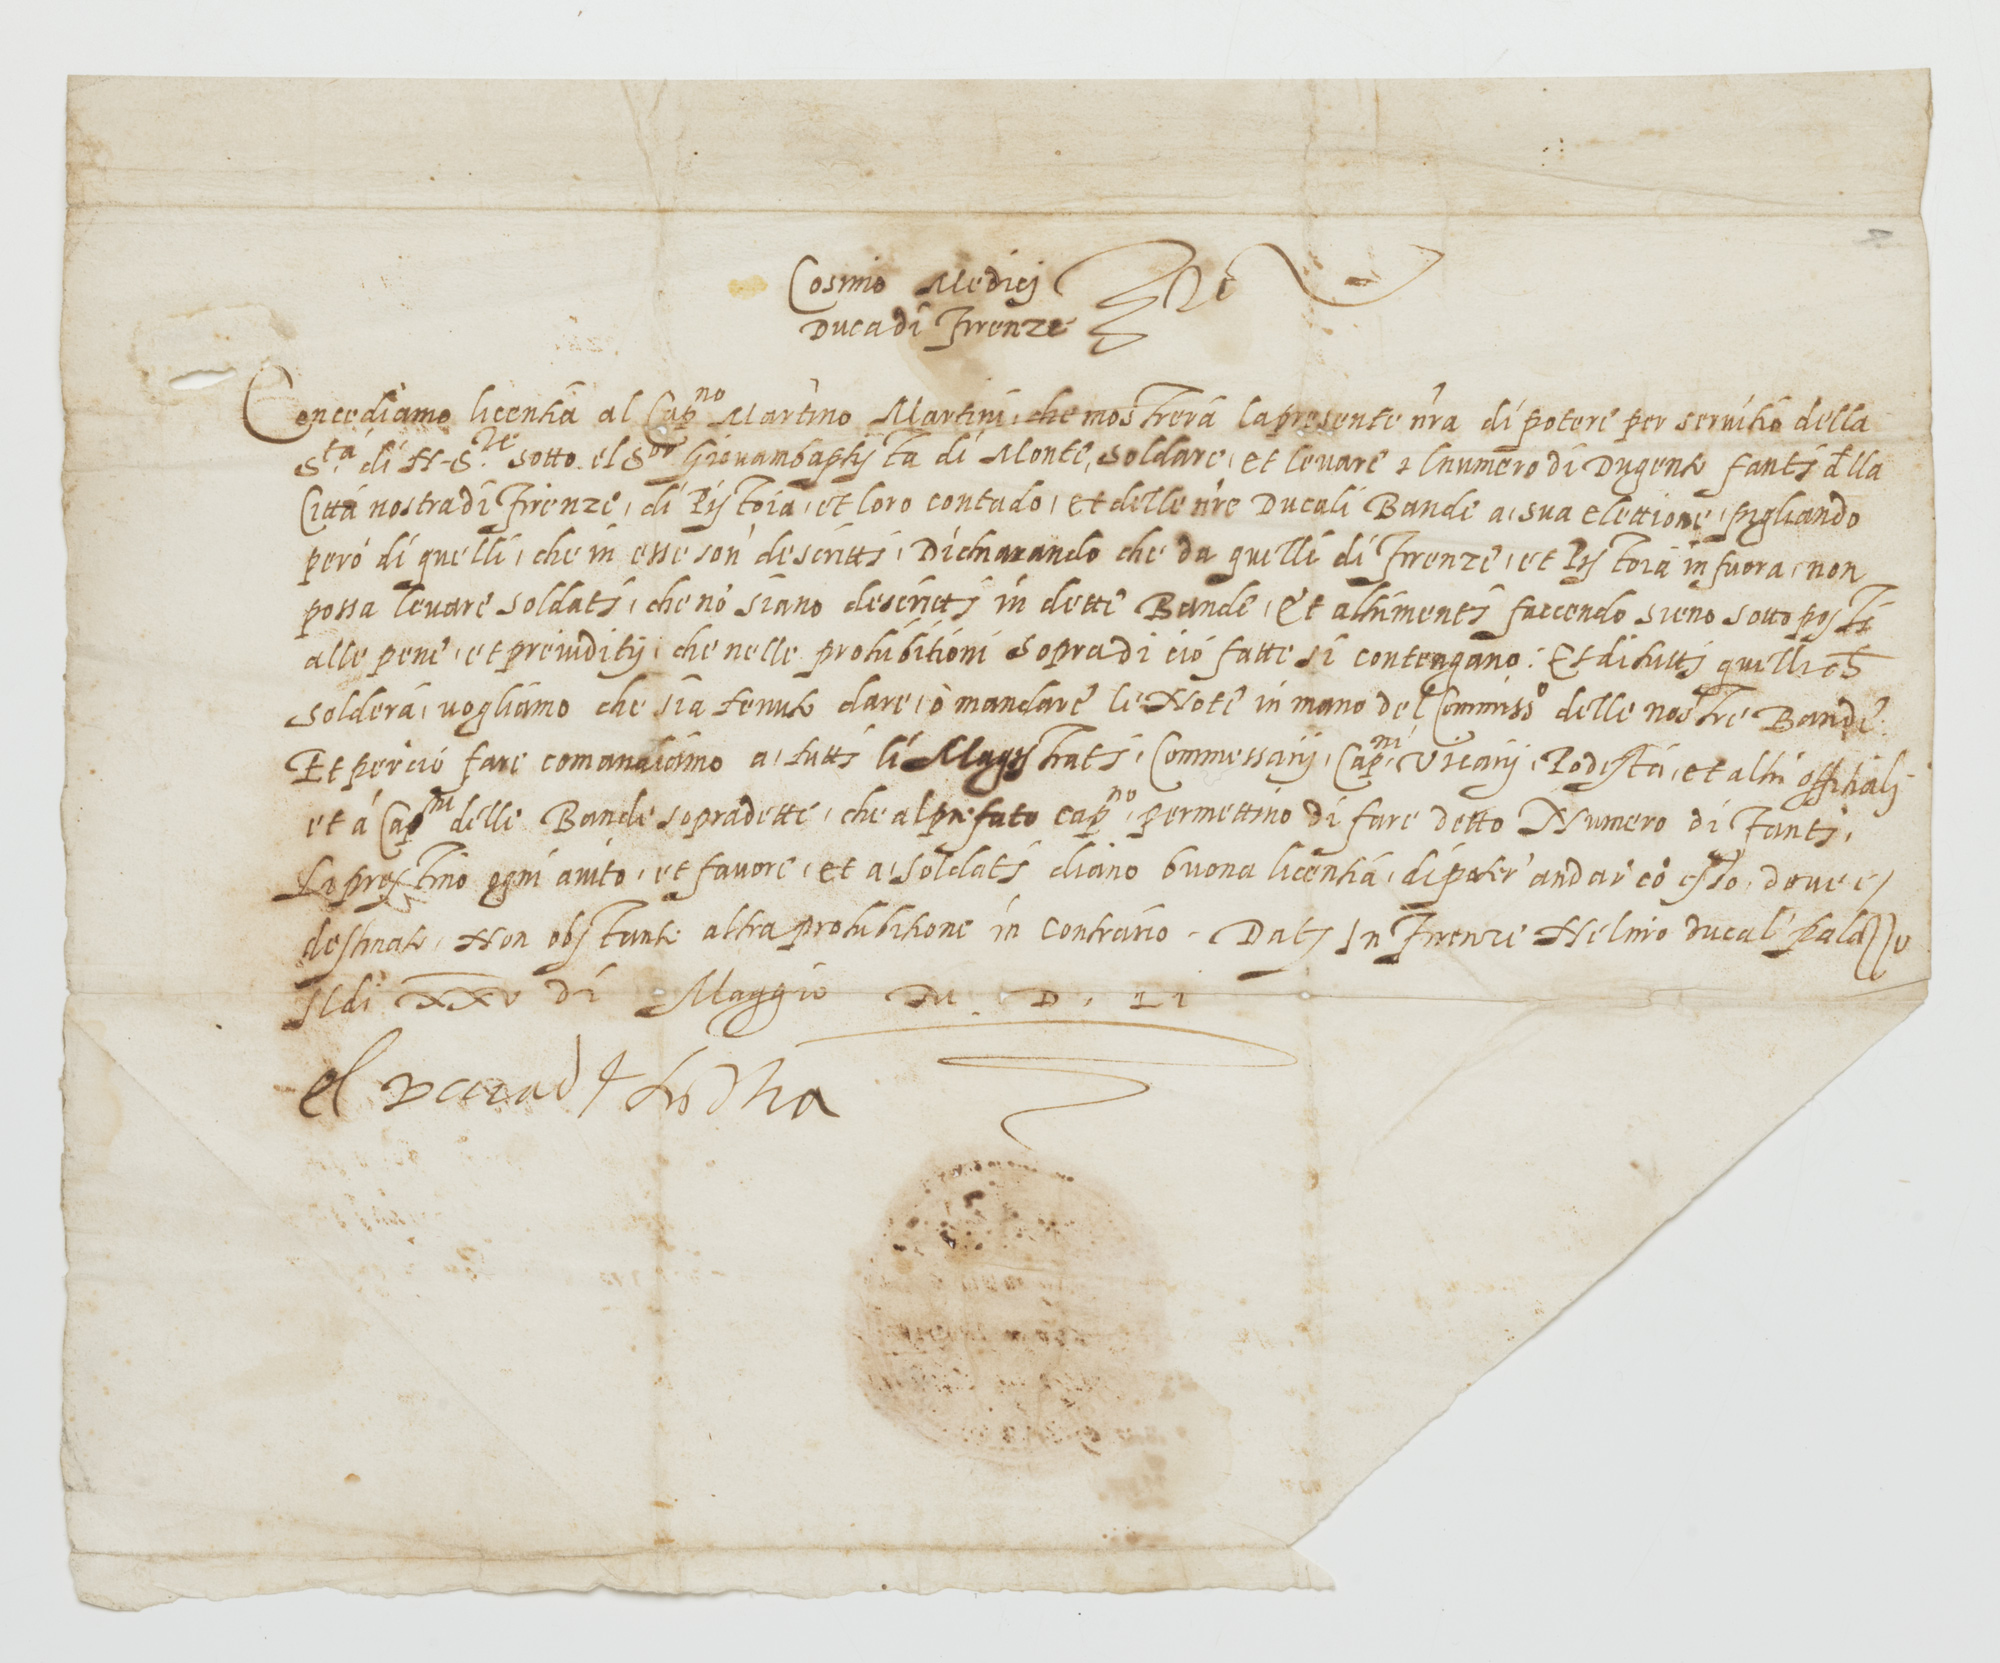 Cosmo Medici
Duca di Firenze
Concediamo licentia al Cap.no Martino Martini, che mostrerà la presente nr̃a di potere per servitio della
S.tà di N. S.re sotto el S.or Giovambaptista di Monte, soldare, et levare el numero di Dugento fanti della
Città nostra di Firenze, di Pistoia, et loro contado, et delle nr̃e Ducali Bande a, sua elettione, pigliando
però di quelli, che in esse son descritti, Dichiarando che da quelli di Firenze, et Pistoia in fuora, non
possa levare soldati, che nõ siano descritti in dette Bande, Et altrimenti faccendo sieno sottoposti
alle pene, et preiuditij, che nelle prohibitioni sopra di ciò fatte si contengano: Et di tutti quelli ch̃
solderà, vogliamo che sia tenuto dare, ò mandare le Note in mano del Commiss.o delle nostre Bande.
Et perciò fare comandiamo a, tutti li Magistrati, Commessarij, Cap.ni, Vicarij, Podestà, et altri offitiali
et à Cap.ni delle Bande sopradette, che al prefato cap.no, permettino di fare detto Numero di Fanti,
Li prestino ogni aiuto, et favore, et a, soldati diano buona licentia, di poter andar cõ esso, dove è
destinato, Non obstante altra prohibitione in contrario. Datj In Firenze Nel nr̃o ducal palazzo
Il di XXV di Maggio M. D. LI
el Duca di fiorenza